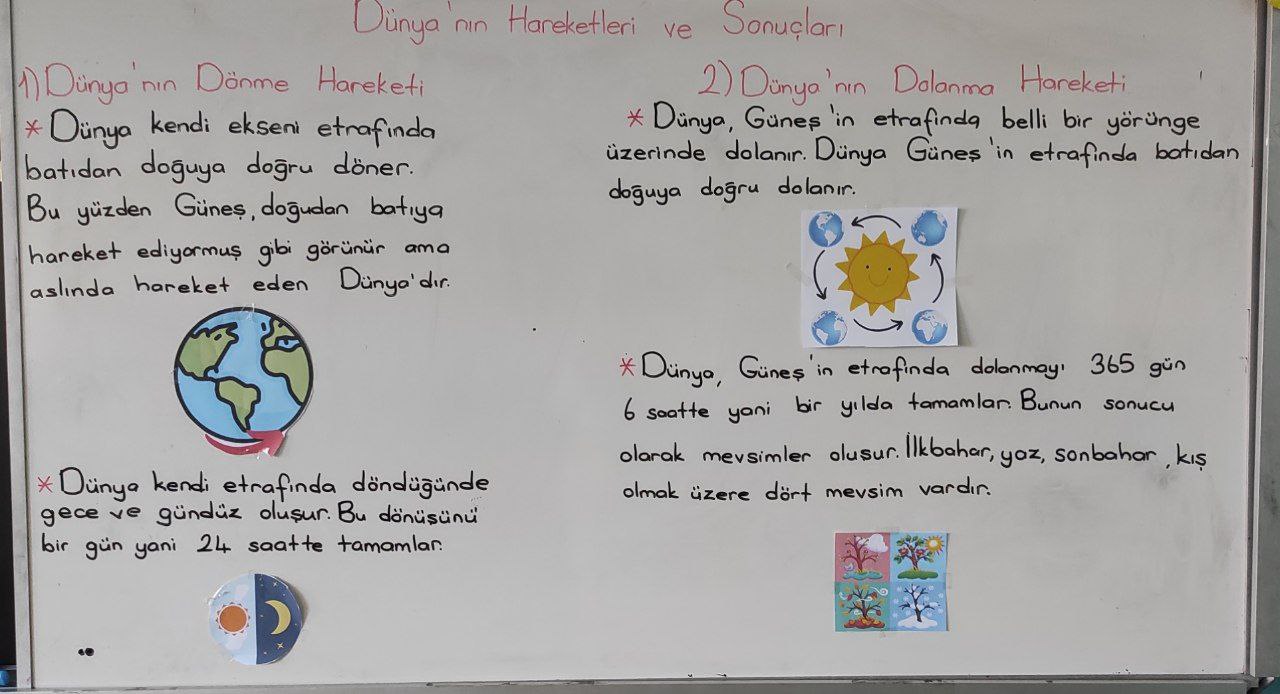 Dünya'nın Hareketleri ve Sonuçları
1) Dünya'nın Dönme Hareketi
* Dünya kendi ekseni etrafında
batıdan doğuya doğru döner.
Bu yüzden Güneş, doğudan batıya
hareket ediyormuş gibi görünür ama
aslında hareket eden Dünya'dır.
* Dünya kendi etrafında döndüğünde
gece ve gündüz oluşur. Bu dönüşünü
bir gün yani 24 saatte tamamlar.
2) Dünya'nın Dolanma Hareketi
* Dünya, Güneş'in etrafında belli bir yörünge
üzerinde dolanır. Dünya Güneş'in etrafında batıdan
doğuya doğru dolanır.
* Dünya, Güneş'in etrafında dolanmayı 365 gün
6 saatte yani bir yılda tamamlar. Bunun sonucu
olarak mevsimler oluşur. İlkbahar, yaz, sonbahar, kış
olmak üzere dört mevsim vardır.